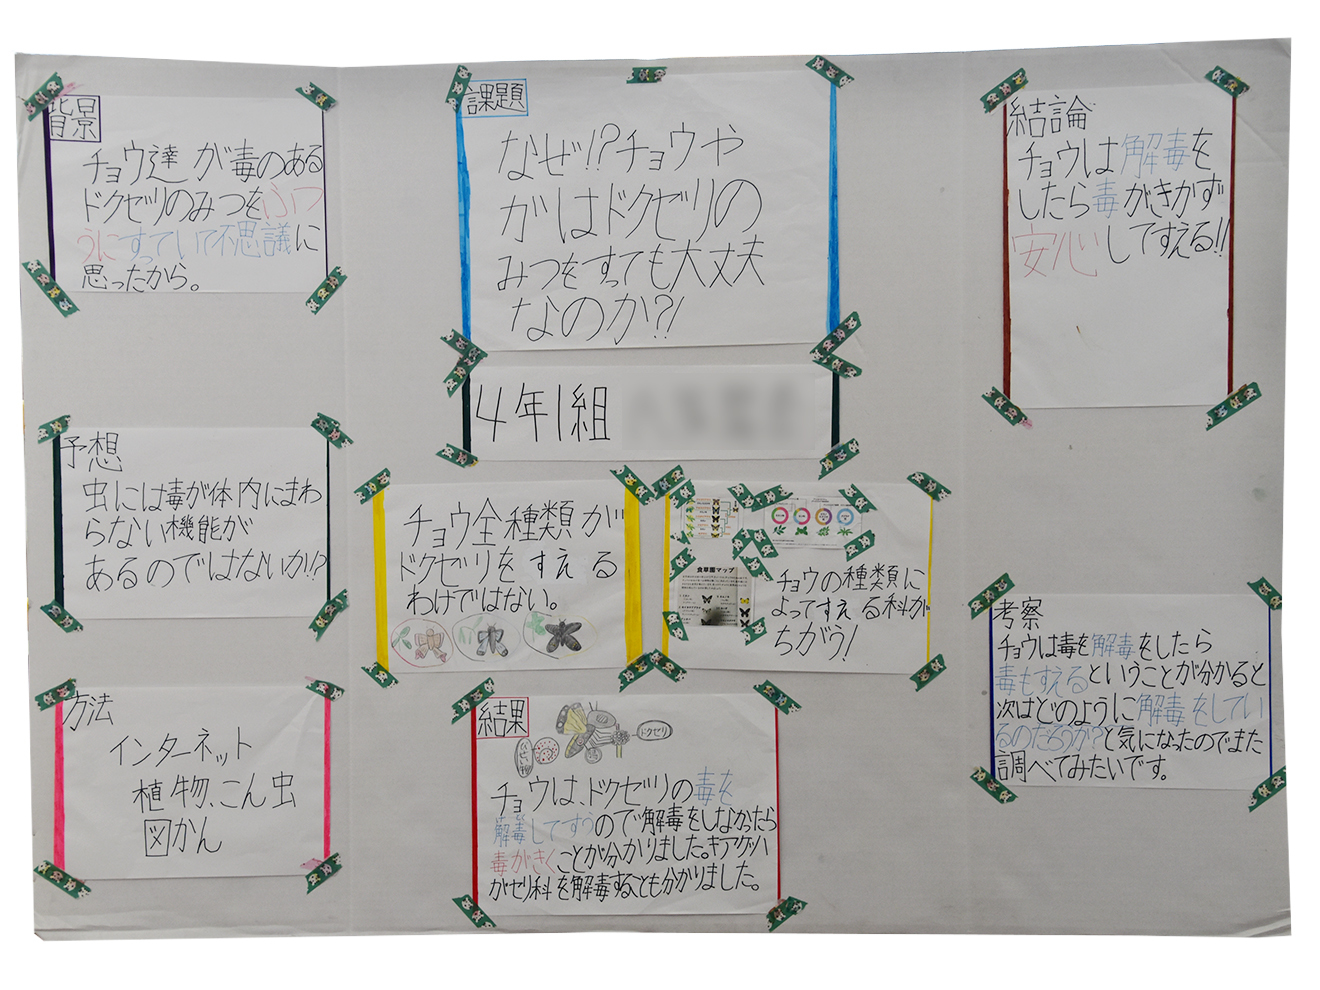 背景
チョウ達が毒のある
ドクゼリのみつをふつ
うにすっていて不思議に
思ったから。
予想
虫には毒が体内にまわ
らない機能が
あるのではないか!?
方法
インターネット
植物、こん虫
図かん
課題
なぜ!?チョウや
がはドクゼリの
みつをすっても大丈夫
なのか?!
4年1組
チョウ全種類が
ドクゼリをすえる
わけではない。
食草園マップ
チョウの種類に
よってすえる科が
ちがう!
結果
ドクゼリ
チョウは、ドクゼリの毒を
解毒してすうので解毒をしなかったら
毒がきくことが分かりました。キアゲハ
がセリ科を解毒することも分かりました。
結論
チョウは解毒を
したら毒がきかず
安心してすえる!!
考察
チョウは毒を解毒をしたら
毒もすえるということが分かると
次はどのように解毒をしてい
るのだろうか?と気になったのでまた
調べてみたいです。